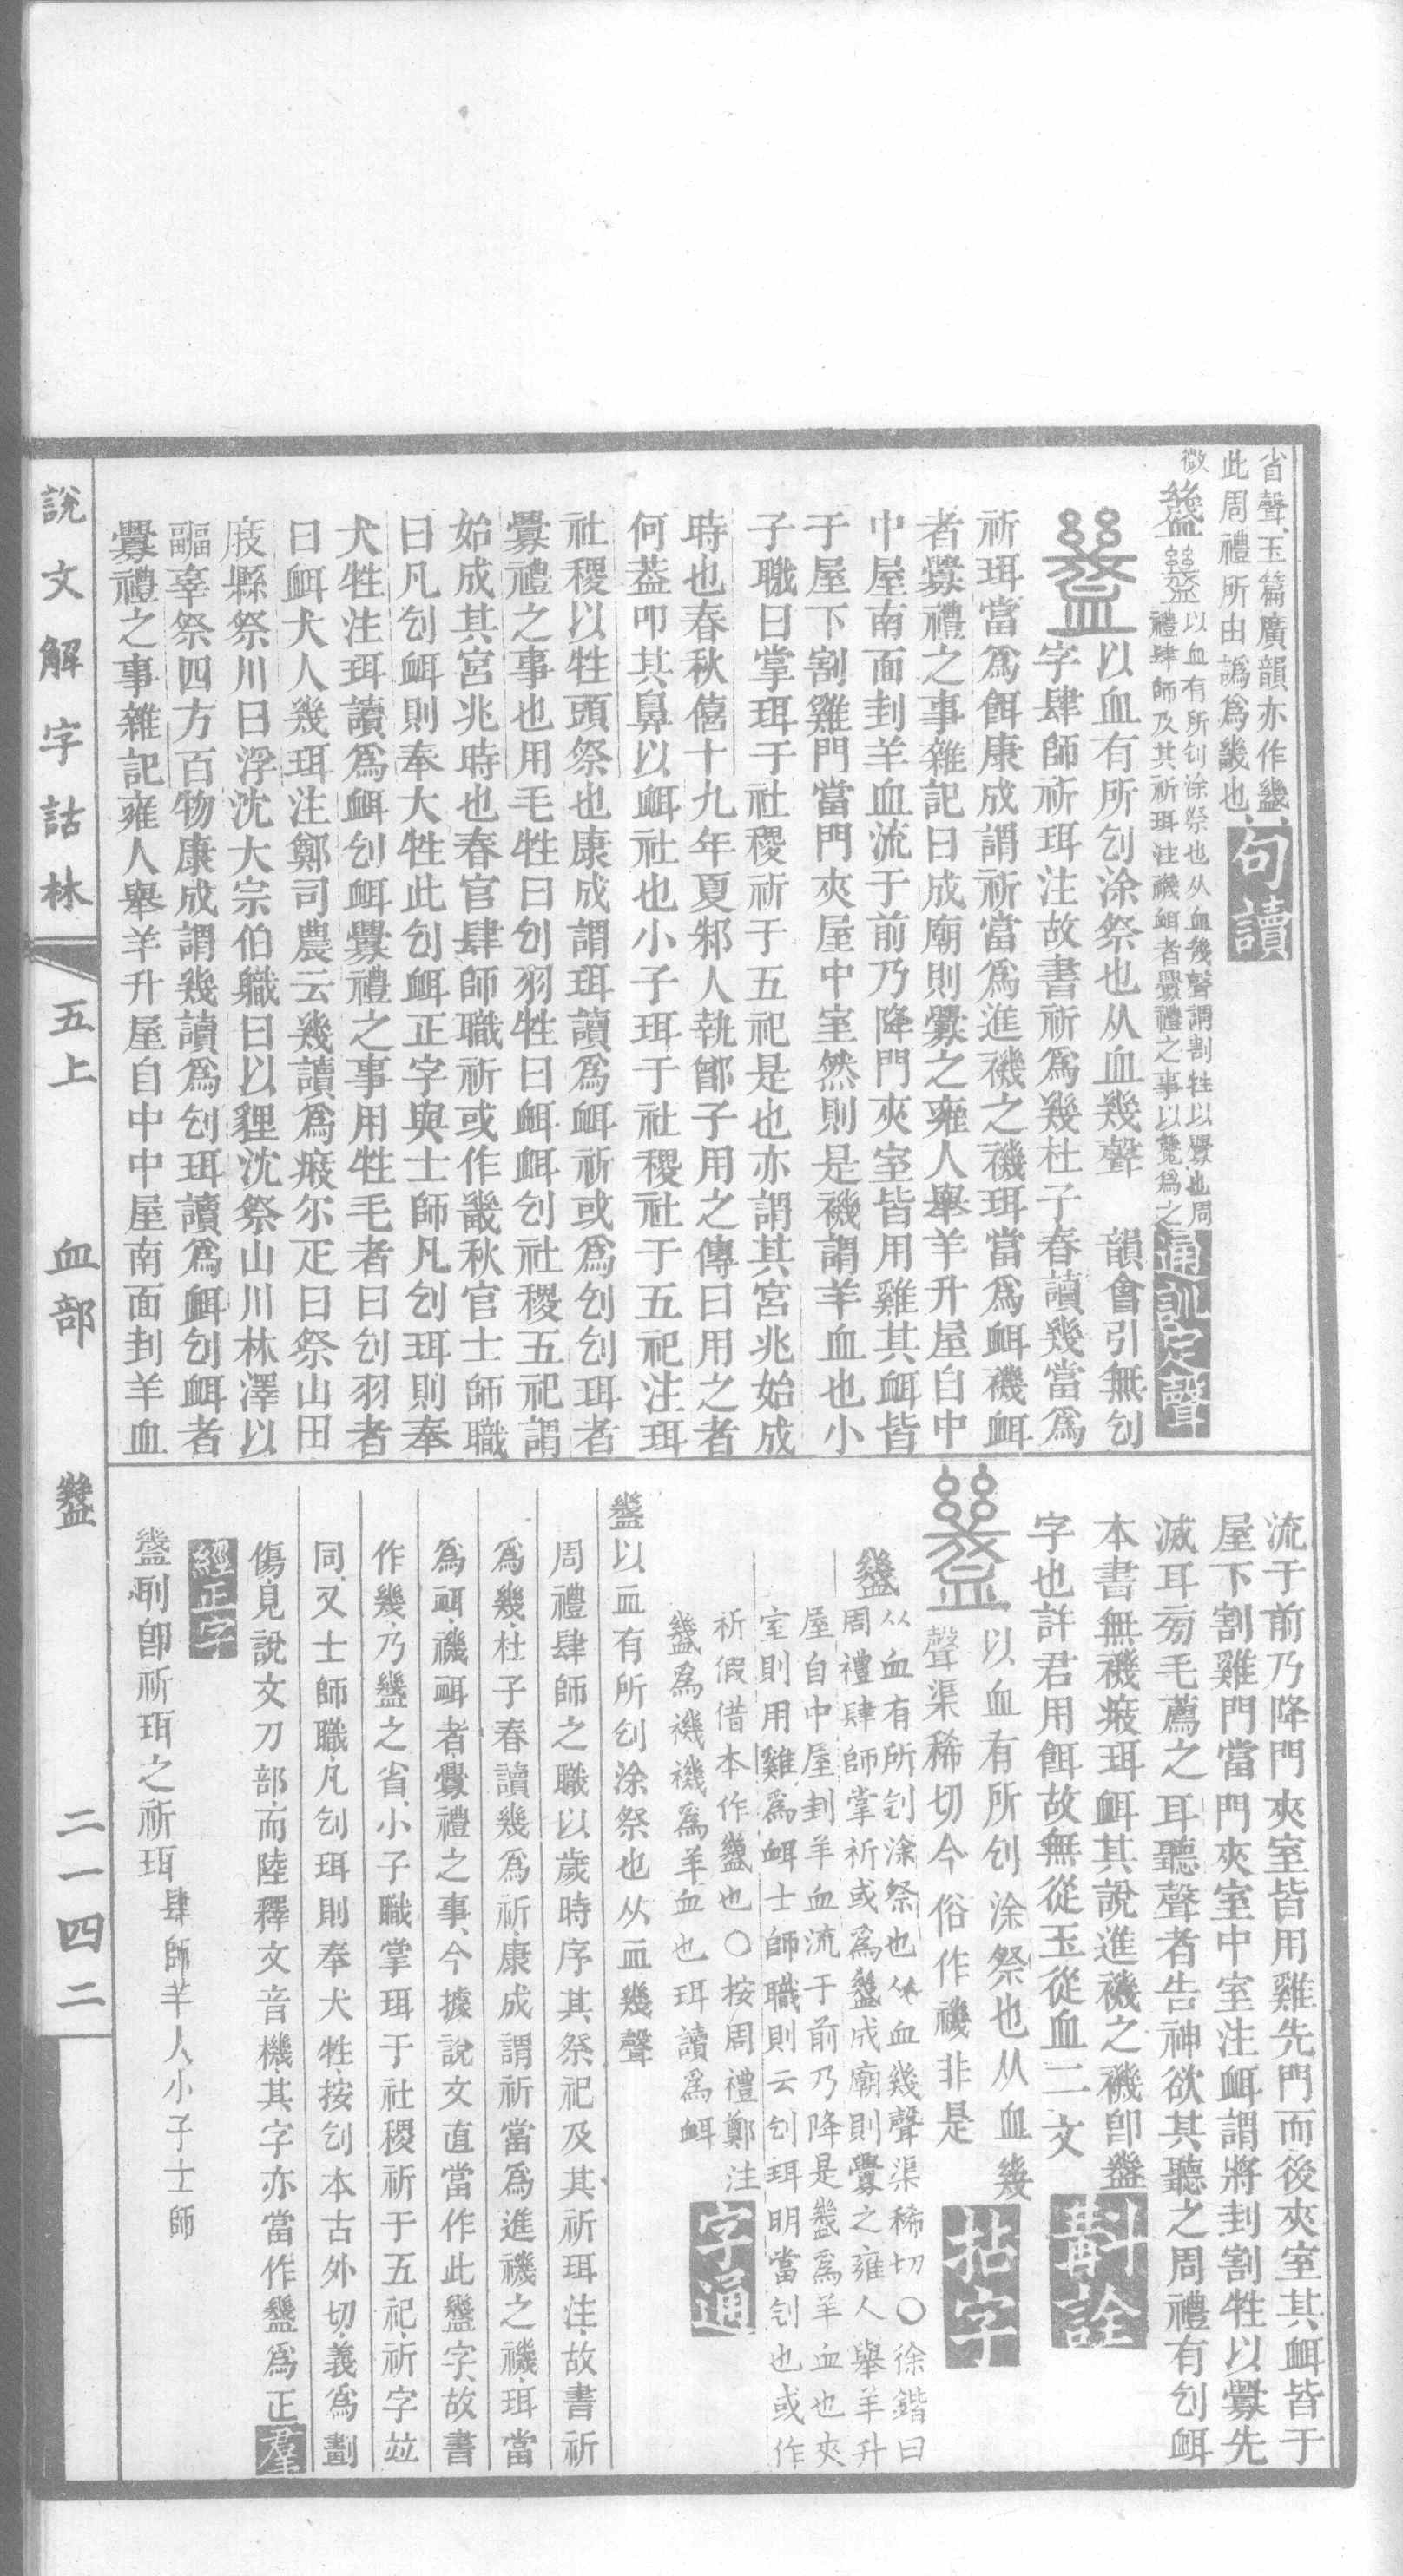 省聲玉篇廣韻亦作䥓
此周禮所由譌爲畿也句讀
微
䥓
以血有所刉涂祭也从血幾聲謂割牲以釁也周
禮肆師及其祈珥注禨衈者釁禮之事以䥓爲之通訓定聲
以血有所刉涂祭也从血幾聲 韻會引無刉
字肆師祈珥注故書祈爲幾杜子春讀幾當爲
祈珥當爲餌康成謂祈當爲進禨之禨珥當爲衈禨衈
者釁禮之事雜記曰成廟則釁之雍人舉羊升屋自中
中屋南面刲羊血流于前乃降門夾室皆用雞其衈皆
于屋下割雞門當門夾屋中室然則是禨謂羊血也小
子職曰掌珥于社稷祈于五祀是也亦謂其宮兆始成
時也春秋僖十九年夏邾人執鄫子用之傳曰用之者
何葢叩其鼻以衈社也小子珥于社稷祉于五祀注珥
社稷以牲頭祭也康成謂珥讀爲衈祈或爲刉刉珥者
釁禮之事也用毛牲曰刉羽牲曰衈衈刉社稷五祀謂
始成其宮兆時也春官肆師職祈或作畿秋官士師職
曰凡刉衈則奉犬牲此刉衈正字與士師凡刉珥則奉
犬牲注珥讀爲衈刉衈釁禮之事用牲毛者曰刉羽者
曰衈犬人幾珥注鄭司農云幾讀爲庪尔疋曰祭山曰
庪縣祭川曰浮沈大宗伯職曰以貍沈祭山川林澤以
疈辜祭四方百物康成謂幾讀爲刉珥讀爲衈刉衈者
釁禮之事雜記雍人舉羊升屋自中中屋南面刲羊血
流于前乃降門夾室皆用雞先門而後夾室其衈皆于
屋下割雞門當門夾室中室注衈謂將刲割牲以釁先
滅耳旁毛薦之耳聽聲者告神欲其聽之周禮有刉衈
本書無禨庪珥衈其說進禨之禨卽䥓
字也許君用餌故無從玉從血二文斠詮
以血有所刉涂祭也从血幾
聲渠稀切今俗作禨非是拈字
䥓
从血有所刉涂祭也从血幾聲渠稀切○徐鍇曰
周禮肆師掌祈或爲䥓成廟則釁之雍人舉羊升
屋自中屋刲羊血流于前乃降是䥓爲羊血也夾
室則用雞爲衈士師職則云刉珥明當刉也或作
祈假借本作䥓也○按周禮鄭注
䥓爲禨禨爲羊血也珥讀爲衈字通
䥓以血有所刉涂祭也从血幾聲
周禮肆師之職以歲時序其祭祀及其祈珥注故書祈
爲幾杜子春讀幾爲祈康成謂祈當爲進禨之禨珥當
爲衈禨衈者釁禮之事今據說文直當作此䥓字故書
作幾乃䥓之省小子職掌珥于社稷祈于五祀祈字竝
同又士師職凡刉珥則奉犬牲按刉本古外切義爲劃
傷見說文刀部而陸釋文音機其字亦當作䥓爲正羣
經正字
䥓刏卽祈珥之祈珥肆師羊人小子士師
說文解字詁林
五上
血部
䥓
二一四二